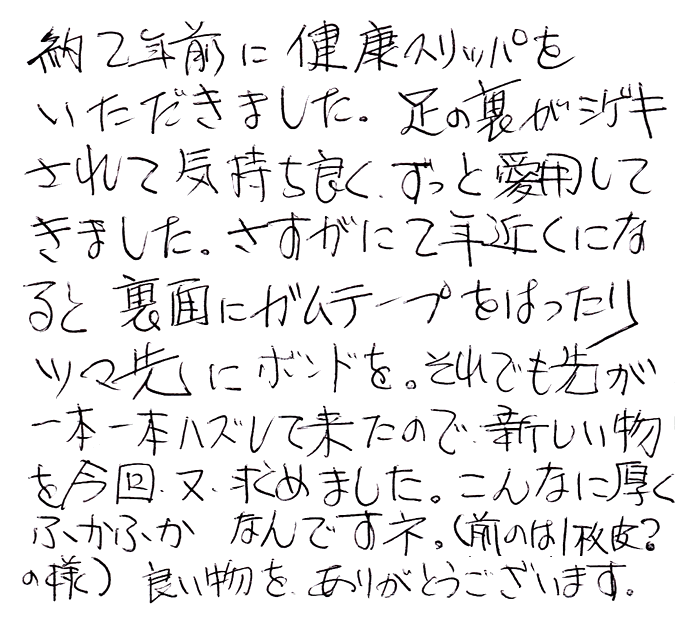 納て年前に健康スリッパを
いただきました。足の裏がシゲキ
されて気持ち良く、ずっと愛用して
きました。さすがに2年近くにな
ると裏面にガムテープをはったり
ツマ先にボンドを。それでも先が
一本一本ハズレて来たので、新しい物
を今回、又、求めました。こんなに厚く
ふかふかなんですネ。(前のは1枚皮?
の様)良い物を、ありがとうございます。